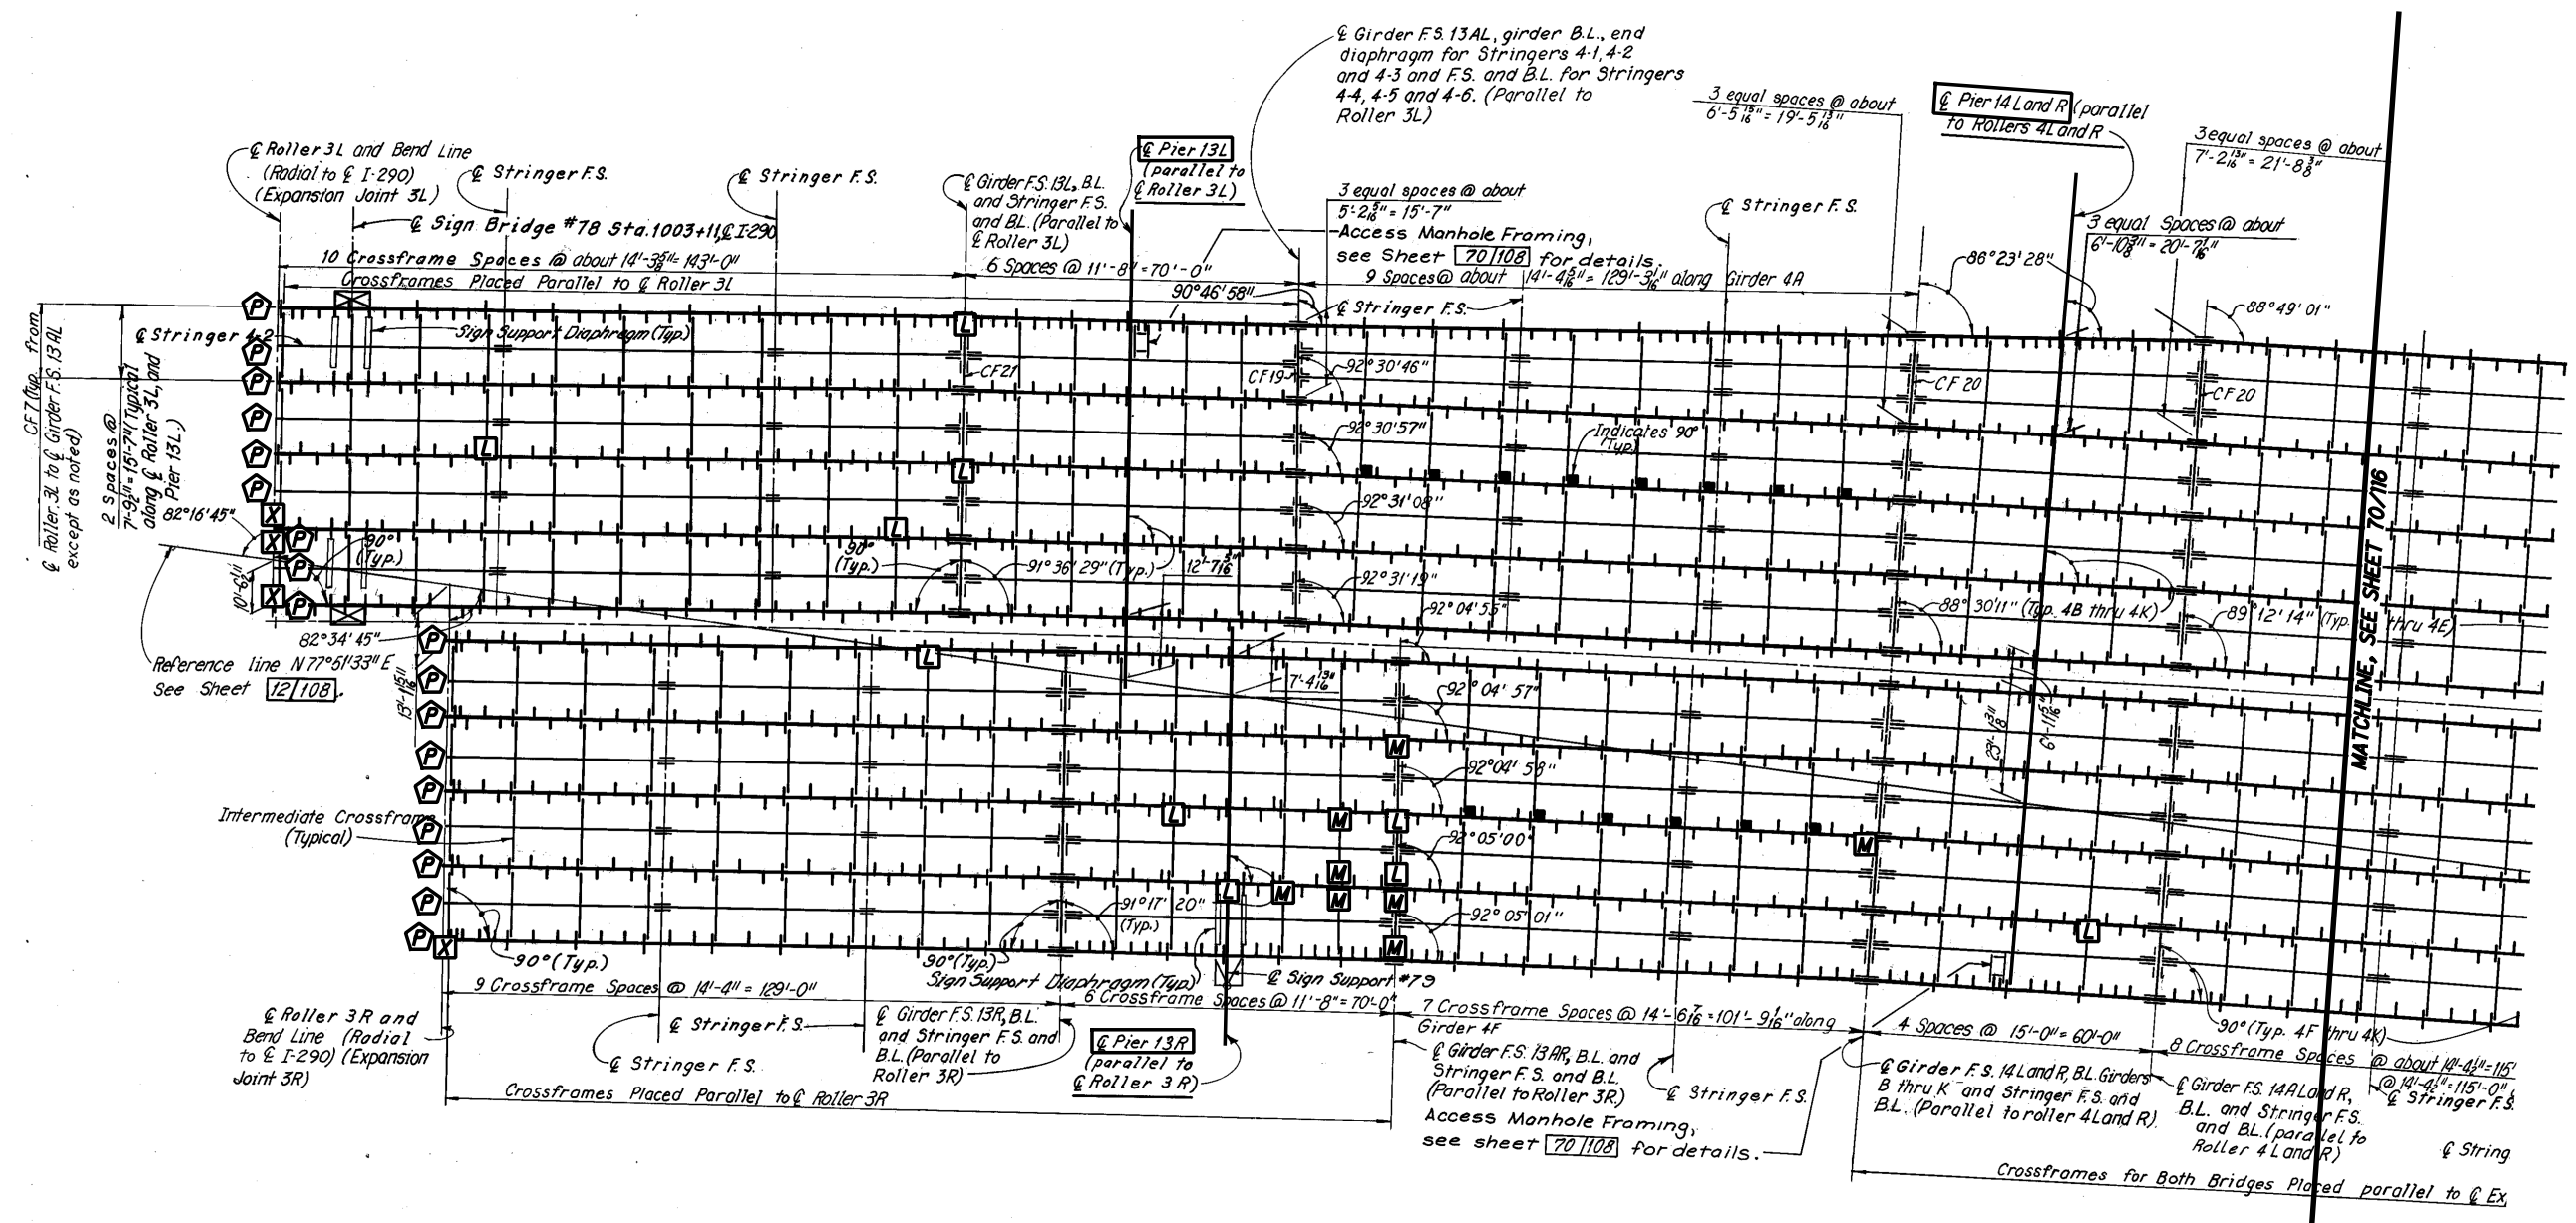 ℄ Girder F.S. 13AL, girder B.L., end
diaphragm for Stringers 4-1, 4-2
and 4-3 and F.S. and B.L. for Stringers
4-4, 4-5 and 4-6. (Parallel to
Roller 3L)
3 equal spaces @ about
6'-5 15/16" = 19'-5 13/16"
℄ Pier 14 L and R (parallel
to Rollers 4L and R
3 equal spaces @ about
7'-2 13/16" = 21'-8 3/8"
℄ Roller 3L and Bend Line
(Radial to ℄ I-290)
(Expansion Joint 3L)
℄ Stringer F.S.
℄ Stringer F.S.
℄ Girder F.S. 13L, B.L.
and Stringer F.S.
and BL. (Parallel to
℄ Roller 3L)
℄ Pier 13L
(parallel to
℄ Roller 3L)
3 equal spaces @ about
5'-2 5/16" = 15'-7"
℄ Stringer F.S.
3 equal Spaces @ about
6'-10 3/8" = 20'-7 1/16"
℄ Sign Bridge #78 Sta. 1003+11, ℄ I-290
Access Manhole Framing,
see Sheet 70/108 for details.
10 Crossframe Spaces @ about 14'-3 5/8" = 143'-0"
6 Spaces @ 11'-8" = 70'-0"
9 Spaces @ about 14'-4 5/16" = 129'-3 1/16" along Girder 4A
86°23'28"
Crossframes Placed Parallel to ℄ Roller 3L
90°46'58"
℄ Stringer F.S.
88°49'01"
P
℄ Stringer 4-2
Sign Support Diaphragm (Typ.)
L
P
CF21
CF19
92°30'46"
CF 20
CF 20
P
CF7 (Typ. from
℄ Roller 3L to ℄ Girder F.S. 13AL
except as noted)
2 Spaces @
7'-9 1/2" = 15'-7" (Typical
along ℄ Roller 3L, and
Pier 13L.)
P
92°30'57"
Indicates 90°
(Typ.)
P
L
L
P
92°31'08"
82°16'45"
X
X
P
L
90°
(Typ.)
90°
(Typ.)
91°36'29" (Typ.)
12'-7 5/16"
P
92°31'19"
10'-6 1/2"
X
P
92°04'55"
88°30'11" (Typ. 4B thru 4K)
89°12'14" (Typ. thru 4E)
82°34'45"
P
L
Reference line N77°51'33"E
See Sheet 12/108.
13'-1 15/16"
P
7'-4 13/16"
92°04'57"
P
23'-1 3/8"
6'-11 5/16"
MATCHLINE, SEE SHEET 70/116
P
M
92°04'58"
P
Intermediate Crossframe
(Typical)
P
L
M
L
92°05'00"
M
P
M
L
P
L
M
M
M
91°17'20"
(Typ.)
92°05'01"
L
P
X
M
90° (Typ.)
90° (Typ.)
Sign Support Diaphragm (Typ.)
℄ Sign Support #79
9 Crossframe Spaces @ 14'-4" = 129'-0"
6 Crossframe Spaces @ 11'-8" = 70'-0"
7 Crossframe Spaces @ 14'-6 7/16" = 101'-9 1/16" along
Girder 4F
4 Spaces @ 15'-0" = 60'-0"
90° (Typ. 4F thru 4K)
8 Crossframe Spaces @ about 14'-4 1/2" = 115'
@ 14'-4 1/2" = 115'-0"
℄ Stringer F.S.
℄ Roller 3R and
Bend Line (Radial
to ℄ I-290) (Expansion
Joint 3R)
℄ Stringer F.S.
℄ Stringer F.S.
℄ Girder F.S. 13R, B.L.
and Stringer F.S. and
B.L. (Parallel to
Roller 3R)
℄ Pier 13R
(parallel to
℄ Roller 3R)
℄ Girder F.S. 13AR, B.L. and
Stringer F.S. and B.L.
(Parallel to Roller 3R)
℄ Stringer F.S.
℄ Girder F.S. 14 L and R, B.L. Girders
B thru K and Stringer F.S. and
B.L. (Parallel to roller 4L and R)
℄ Girder F.S. 14A L and R,
B.L. and Stringer F.S.
and B.L. (parallel to
Roller 4 L and R)
Crossframes Placed Parallel to ℄ Roller 3R
Access Manhole Framing,
see sheet 70/108 for details.
℄ String
Crossframes for Both Bridges Placed parallel to ℄ Ex